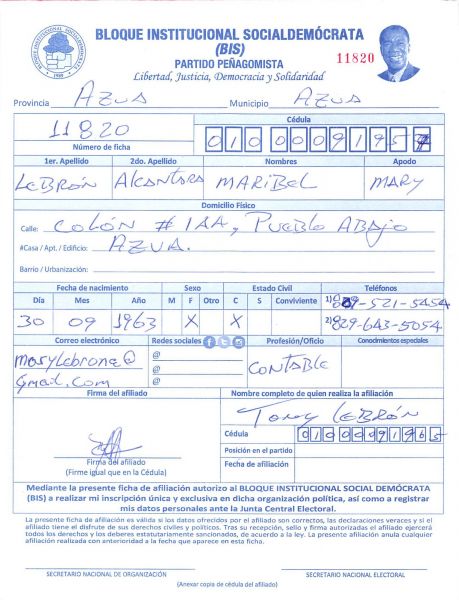 BLOQUE INSTITUCIONAL SOCIALDEMÓCRATA
(BIS)
PARTIDO PEÑAGOMISTA
11820
Libertad, Justicia, Democracia y Solidaridad
Provincia AZUA Municipio AZUA
11820
Número de ficha
Cédula
1er. Apellido 2do. Apellido Nombres Apodo
LEBRÓN Alcantara MARIBEL MARY
Domicilio Físico
Calle: COLÓN # 1AA, PUEBLO ABAJO
#Casa / Apt. / Edificio: AZUA.
Barrio / Urbanización:
Fecha de nacimiento Sexo Estado Civil Teléfonos
Día Mes Año M F Otro C S Conviviente
30 09 1963 X X
1) 521-5454
2) 829-643-5054
Correo electrónico Redes sociales Profesión/Oficio Conocimientos especiales
marylebrone@
gmail.com
@
@
@
CONTABLE
Firma del afiliado Nombre completo de quien realiza la afiliación
Tony LEBRÓN
Cédula
Posición en el partido
Fecha de afiliación
Firma del afiliado
(Firme igual que en la Cédula)
Mediante la presente ficha de afiliación autorizo al BLOQUE INSTITUCIONAL SOCIAL DEMÓCRATA
(BIS) a realizar mi inscripción única y exclusiva en dicha organización política, así como a registrar
mis datos personales ante la Junta Central Electoral.
La presente ficha de afiliación es válida si los datos ofrecidos por el afiliado son correctos, las declaraciones veraces y si el
afiliado tiene el disfrute de sus derechos civiles y políticos. Tras su recepción, sello y firma autorizadas el afiliado ejercerá
todos los derechos y los deberes estatutariamente sancionados, de acuerdo a la ley. La presente afiliación anula cualquier
afiliación realizada con anterioridad a la fecha que aparece en esta ficha.
SECRETARIO NACIONAL DE ORGANIZACIÓN SECRETARIO NACIONAL ELECTORAL
(Anexar copia de cédula del afiliado)